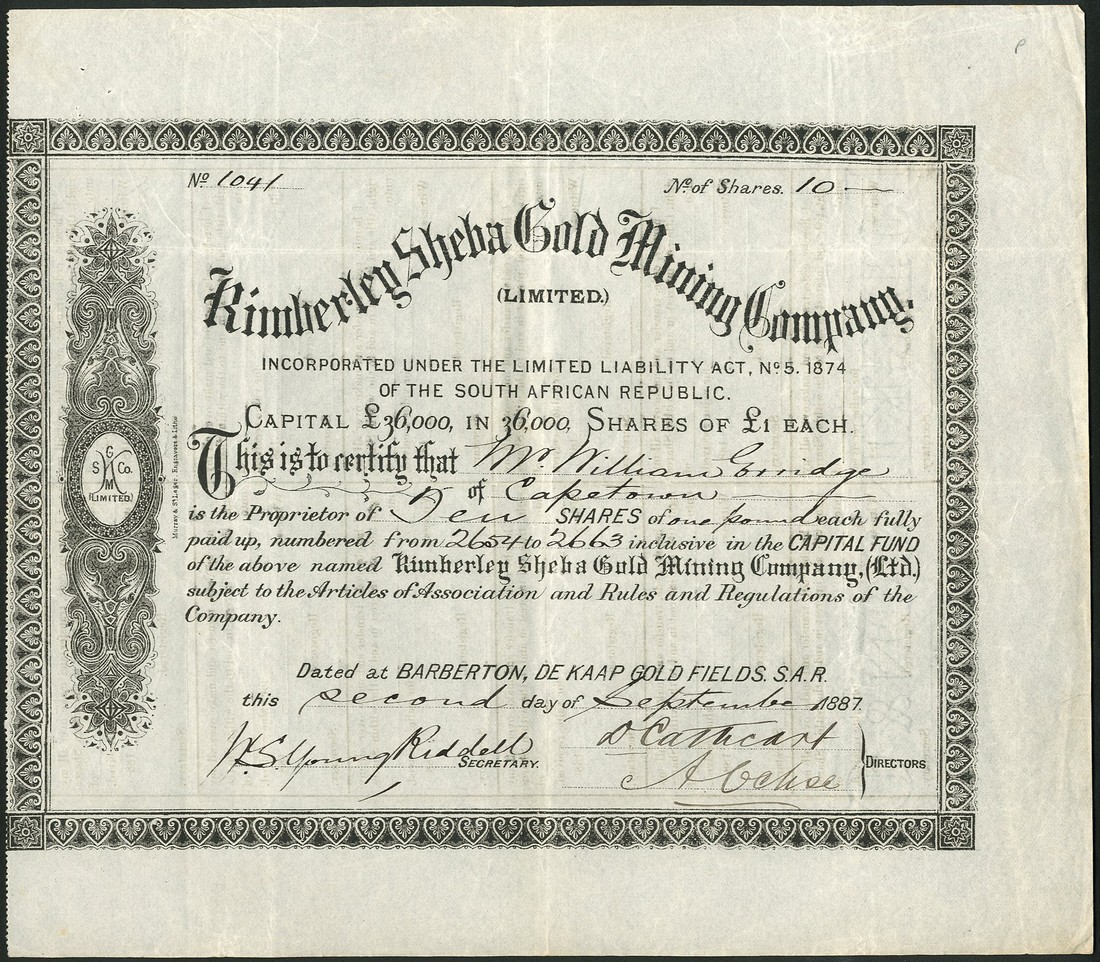 Nº 1041
Nº of Shares. 10 —
Kimberley Sheba Gold Mining Company.
(LIMITED.)
INCORPORATED UNDER THE LIMITED LIABILITY ACT, Nº 5. 1874
OF THE SOUTH AFRICAN REPUBLIC.
CAPITAL £36,000, IN 36,000, SHARES OF £1 EACH.
This is to certify that Mr. William
of Capetown
is the Proprietor of Ten SHARES of one pound each fully
paid up, numbered from 2654 to 2663 inclusive in the CAPITAL FUND
of the above named Kimberley Sheba Gold Mining Company, (Ltd.)
subject to the Articles of Association and Rules and Regulations of the
Company.
Dated at BARBERTON, DE KAAP GOLD FIELDS. S.A.R.
this second day of September 1887
W. S. Young Riddell
SECRETARY.
D Cathcart
A Ochse
DIRECTORS
G
S Co.
M
(LIMITED.)
Murray & St Leger. Engravers & Lithrs